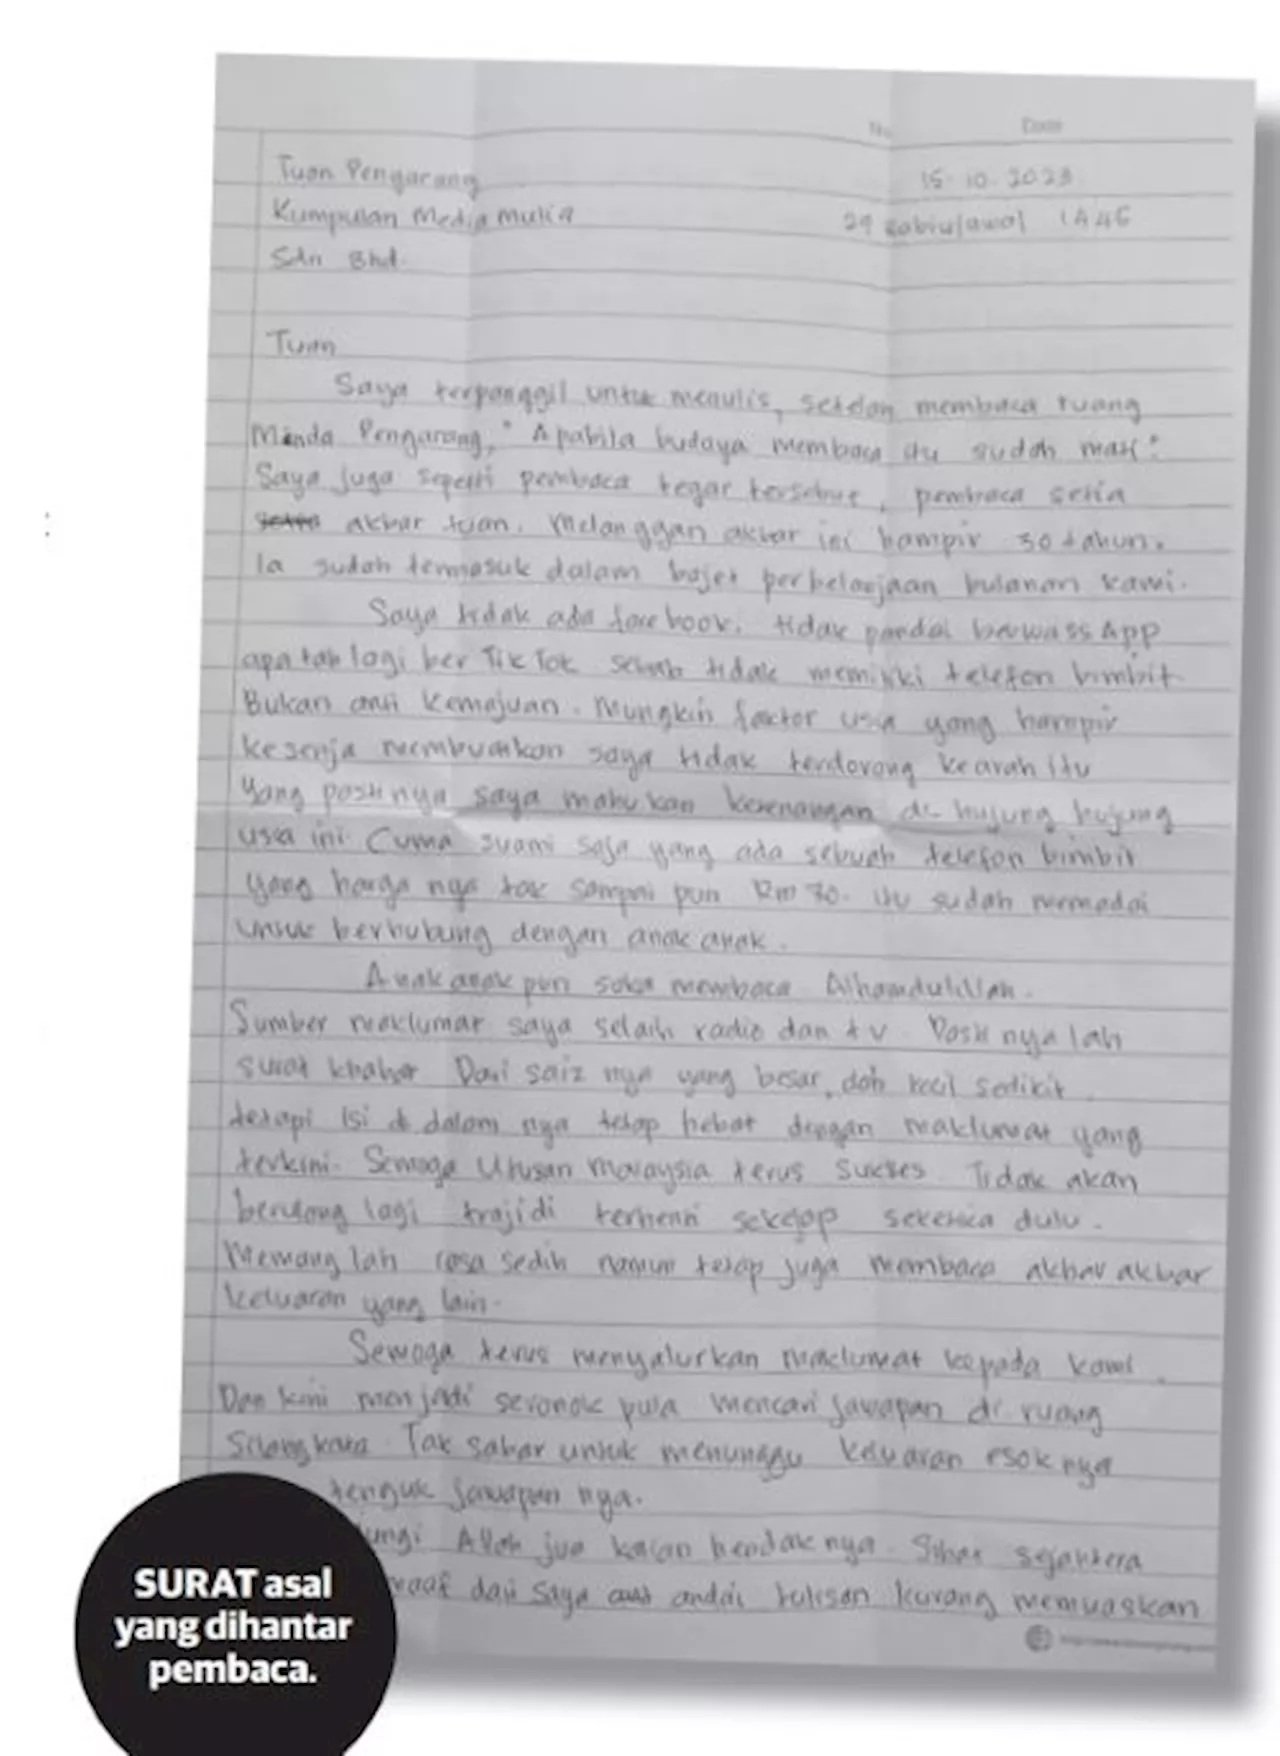 No. Date
Tuan Pengarang 15-10-2023
Kumpulan Media Mulia 29 Rabiulawal 1445
Sdn Bhd.
Tuan
Saya terpanggil untuk menulis, setelah membaca ruang
Minda Pengarang, "Apabila budaya membaca itu sudah mati".
Saya juga seperti pembaca tegar tersebut, pembaca setia
akbar tuan. Melanggan akbar ini hampir 30 tahun.
Ia sudah termasuk dalam bajet perbelanjaan bulanan kami.
Saya tidak ada facebook, tidak pandai berwassApp
apatah lagi ber TikTok sebab tidak memiliki telefon bimbit
Bukan anti kemajuan. Mungkin faktor usia yang hampir
kesenja membuatkan saya tidak terdorong kearah itu
yang pastinya saya mahukan ketenangan di hujung hujung
usia ini. Cuma suami saja yang ada sebuah telefon bimbit
yang harga nya tak sampai pun RM 70. itu sudah memadai
untuk berhubung dengan anak anak.
Anak anak pun suka membaca Alhamdulillah.
Sumber maklumat saya selain radio dan tv. Pasti nya lah
surat khabar Dari saiz nya yang besar, dah kecil sedikit
tetapi isi di dalam nya tetap hebat dengan maklumat yang
terkini. Semoga Utusan Malaysia terus sukses. Tidak akan
berulang lagi trajidi terhenti sekejap seketika dulu.
Memang lah rasa sedih namun tetap juga membaca akhbar akbar
keluaran yang lain.
Semoga terus menyalurkan maklumat kepada kami.
Dan kini menjadi seronok pula mencari jawapan di ruang
Silangkata. Tak sabar untuk menunggu keluaran esok nya
tenguk jawapan nya.
ungi Allah jua kalian hendak nya. Sihat sejahtera
maaf dari saya andai tulisan kurang memuaskan
SURAT asal
yang dihantar
pembaca.